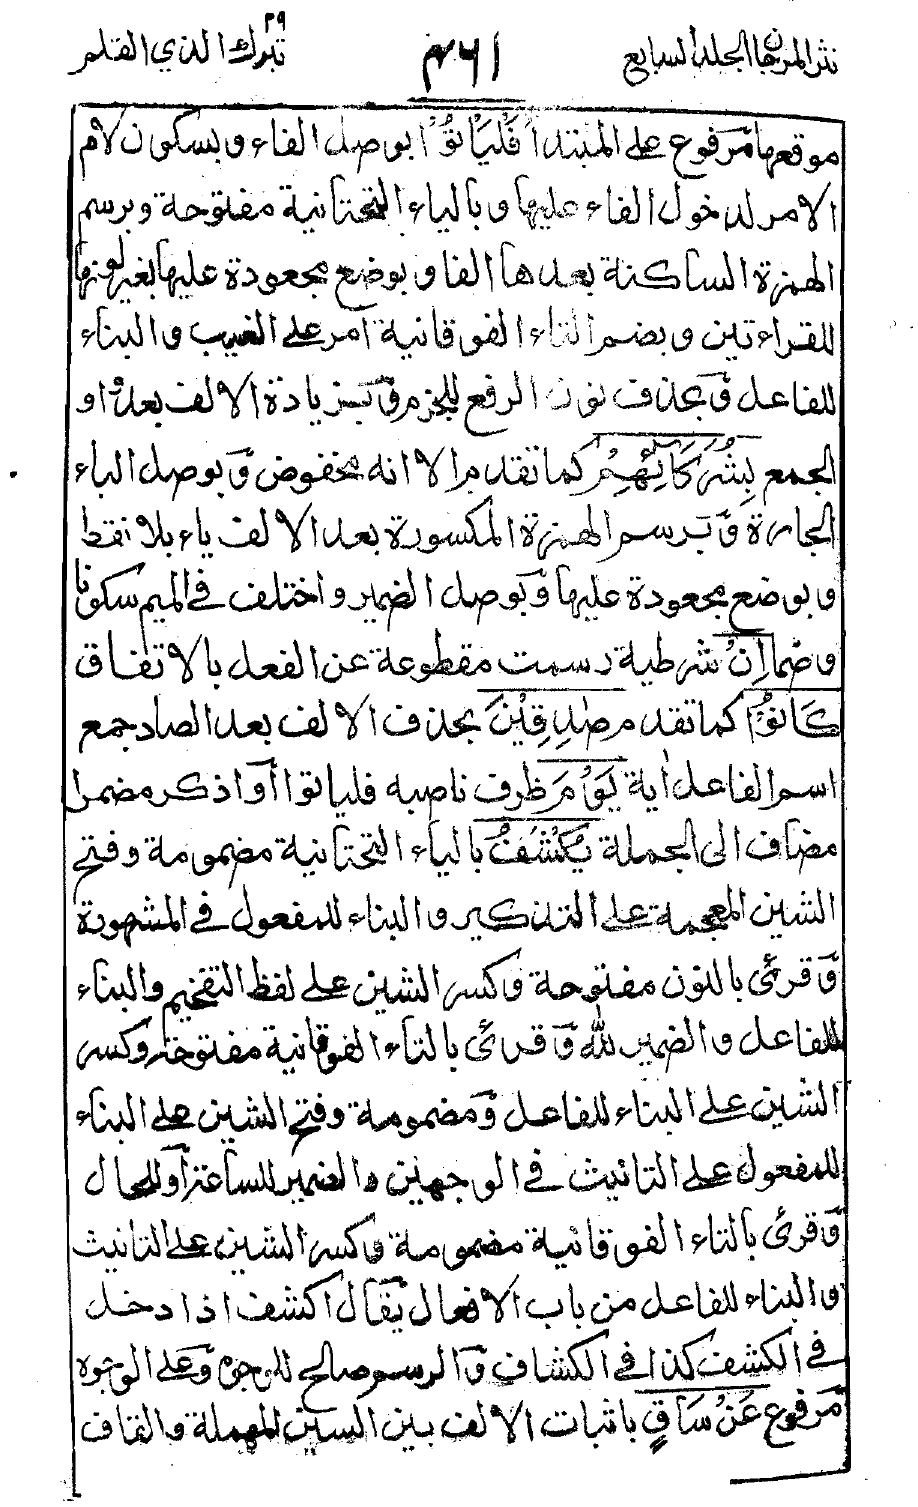 نثر المرجان الجلد السابع
٤٦١
تبرك الذي ٢٩ القلم
موقعها مرفوع على المبتدا فَلْيَأْتُوْا بوصل الفاء و بسكون لام
الامر لدخول الفاء عليها و بالياء التحتانية مفتوحة و برسم
الهمزة الساكنة بعدها الفا و بوضع مجعودة عليها بغير لونها
للقراءتين و بضم التاء الفوقانية امر على الغيب و البناء
للفاعل وَ بحذف نون الرفع للجزم وَ بزيادة الالف بعد واو
الجمع بِشُرَكَآئِهِمْ كما تقدم الا انه مخفوض وَ بوصل الباء
الجارة وَ برسم الهمزة المكسورة بعد الالف ياء بلا نقط
و بوضع مجعودة عليها وَ بوصل الضمير و اختلف في الميم سكونا
و ضما اِنْ شرطية رسمت مقطوعة عن الفعل بالاتفاق
كَانُوْا كما تقدم صٰدِقِيْنَ بحذف الالف بعد الصاد جمع
اسم الفاعل اٰية يَوْمَ ظرف ناصبه فلياتوا اَو اذكر مضمرا
مضاف الى الجملة يُكْشَفُ بالياء التحتانية مضمومة و فتح
الشين المعجمة على التذكير و البناء للمفعول في المشهورة
وَ قرئ بالنون مفتوحة و كسر الشين على لفظ التفخيم و البناء
للفاعل و الضمير لله وَ قرئ بالتاء الفوقانية مفتوحة و كسر
الشين على البناء للفاعل وَ مضمومة و فتح الشين على البناء
للمفعول على التانيث في الوجهين و الضمير للساعة اَو للحال
وَ قرئ بالتاء الفوقانية مضمومة و كسر الشين على التانيث
و البناء للفاعل من باب الافعال يُقال اكشف اذا دخل
في الكشف كذا في الكشاف وَ الرسم صالح للوجوه وَ على الوجوه
مرفوع عَنْ سَاقٍ باثبات الالف بين السين المهملة و القاف